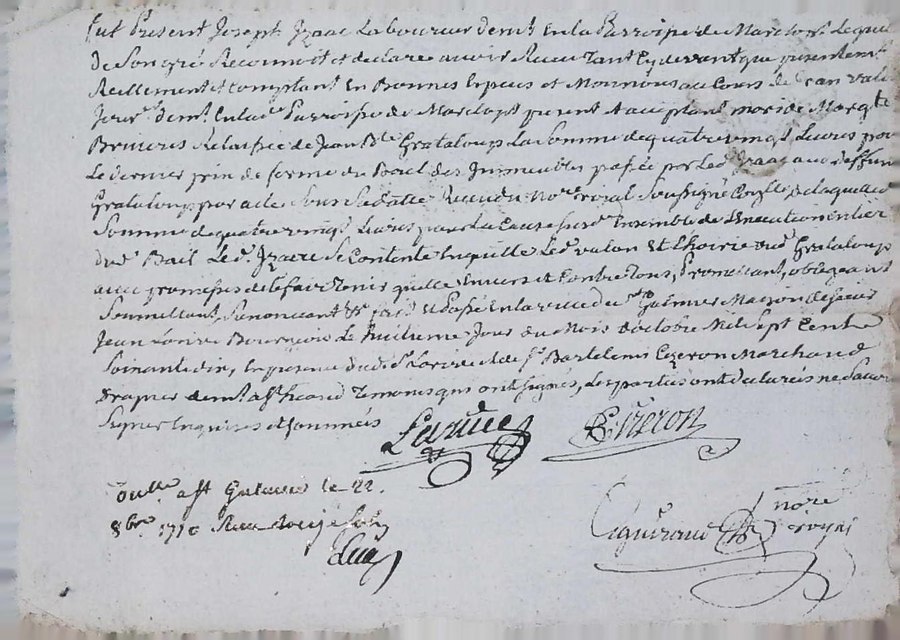 Fut Présent Joseph Izaac Laboureur demt. En la Parroisse de Marclopt Lequel
De Son gré Reconnoit et declare avoir Receu Tant Cy devant que presentemt.
Reellement et Comptant En Bonnes Especes et Monnoies au Cours de Jean valon
Jour. demt. En lad. Parroisse de Marclopt present & acceptant mari de Margte.
Relaissée de Jean Bte. Grataloup La Somme de quatre vingt Livres pour
Le dernier prix de ferme du Bail des Immeubles passée par Led. Izaac aud. deffunt
Grataloup par acte Sous Sa datte Receu du Nore. royal Soussigné De laquelle
Somme de quatre vingt Livres pour La Cause susd. Ensemble de L'Execution Entier
dud. Bail Led. Izaac Se Contente En quitte Led. valon Et L'hoirie dud. Grataloup
avec promesses de le faire Tenir quitte Envers et Contre Tous, Promettant, obligeant
Soumettant, Renonçant &c fait et Passé En la ville de St. Galmier Maison de sieur
Jean Bourgeois Le huitieme Jour du Mois d'octobre Mil Sept Cents
Soixante dix, En presence dud. Sr. Larüe et de Sr. Bartelemi Ezeron Marchand
drapier demt. aSt. Temoins qui ont signés, Les parties ont declarés ne Savoir
Signer Enquises et Sommées
Larüe BEzeron
Contllé. aSt Galmier le 22.
8bre. 1770 Reçu
nore
royal